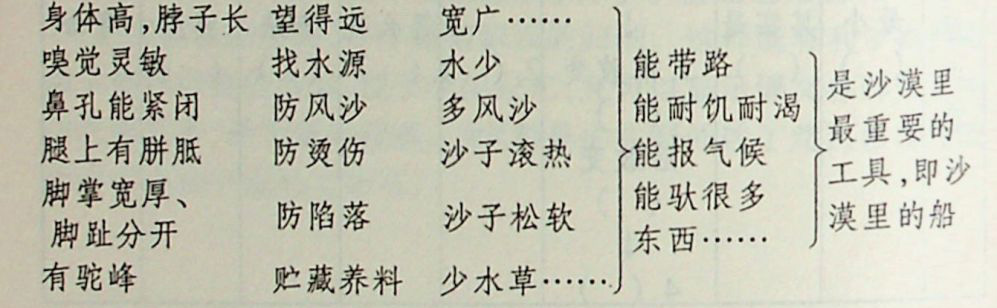 身体高,脖子长 望得远 宽广……
嗅觉灵敏 找水源 水少
鼻孔能紧闭 防风沙 多风沙
腿上有胼胝 防烫伤 沙子滚热
脚掌宽厚、
脚趾分开 防陷落 沙子松软
有驼峰 贮藏养料 少水草……
能带路
能耐饥耐渴
能报气候
能驮很多
东西……
是沙漠里
最重要的
工具,即沙
漠里的船